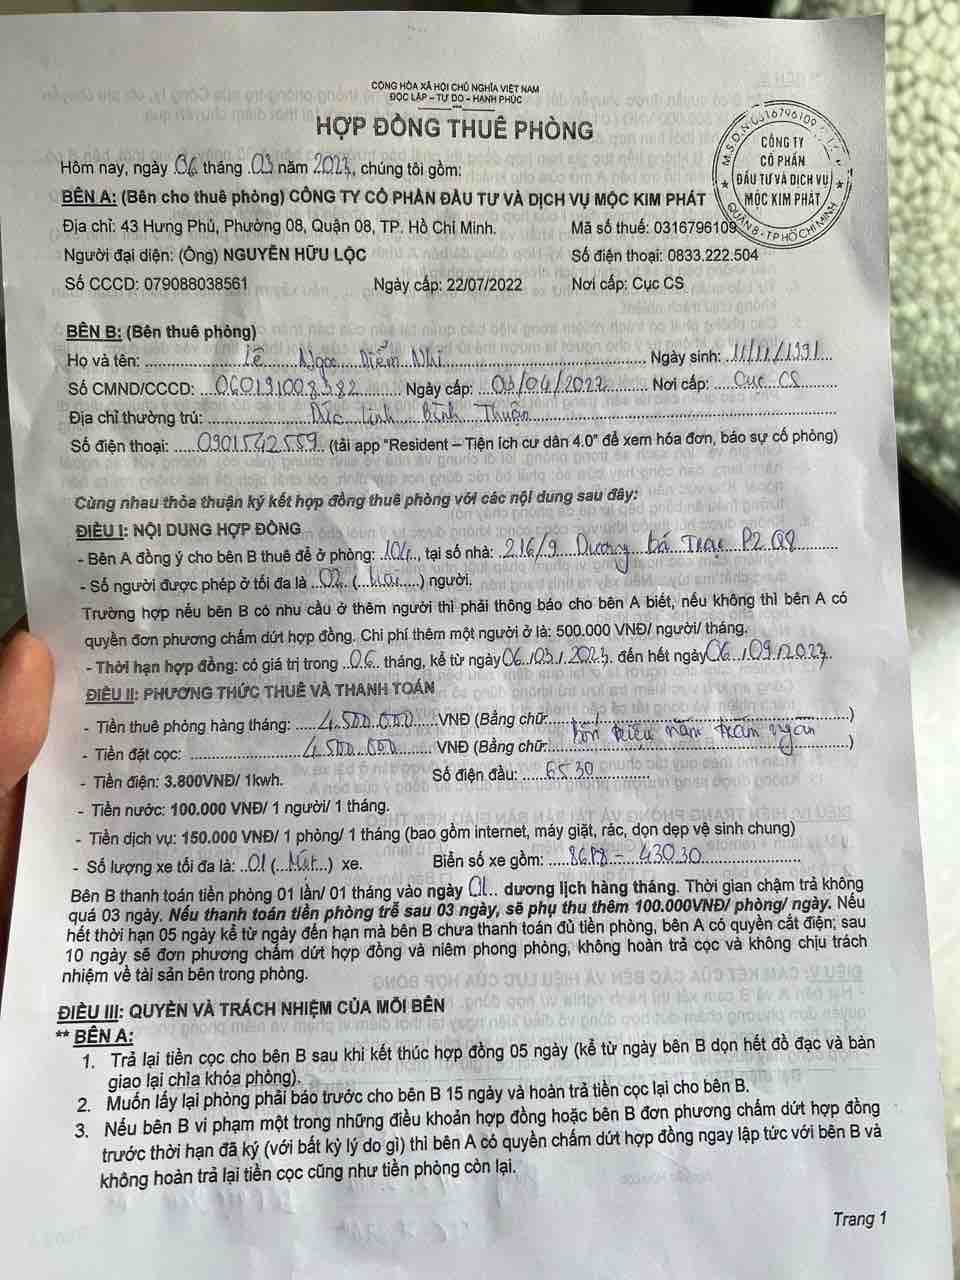 CỘNG HÒA XÃ HỘI CHỦ NGHĨA VIỆT NAM
ĐỘC LẬP – TỰ DO – HẠNH PHÚC
HỢP ĐỒNG THUÊ PHÒNG
M.S.D.N:0316796109
CÔNG TY
CỔ PHẦN
ĐẦU TƯ VÀ DỊCH VỤ
MỘC KIM PHÁT
QUẬN 8 - TP HỒ CHÍ MINH
Hôm nay, ngày 06 tháng 03 năm 2023, chúng tôi gồm:
BÊN A: (Bên cho thuê phòng) CÔNG TY CỔ PHẦN ĐẦU TƯ VÀ DỊCH VỤ MỘC KIM PHÁT
Địa chỉ: 43 Hưng Phú, Phường 08, Quận 08, TP. Hồ Chí Minh. Mã số thuế: 0316796109
Người đại diện: (Ông) NGUYỄN HỮU LỘC Số điện thoại: 0833.222.504
Số CCCD: 079088038561 Ngày cấp: 22/07/2022 Nơi cấp: Cục CS
BÊN B: (Bên thuê phòng)
Họ và tên: Lê Ngọc Diễm Nhi Ngày sinh: 11/11/1991
Số CMND/CCCD: 060191008382 Ngày cấp: 04/2022 Nơi cấp: Cục CS
Địa chỉ thường trú: Đức Linh Bình Thuận
Số điện thoại: 0901542559 (tải app "Resident – Tiện ích cư dân 4.0" để xem hóa đơn, báo sự cố phòng)
Cùng nhau thỏa thuận ký kết hợp đồng thuê phòng với các nội dung sau đây:
ĐIỀU I: NỘI DUNG HỢP ĐỒNG
- Bên A đồng ý cho bên B thuê để ở phòng: 104, tại số nhà: 216/9 Dương Bá Trạc P2 Q8
- Số người được phép ở tối đa là 02 (hai) người.
Trường hợp nếu bên B có nhu cầu ở thêm người thì phải thông báo cho bên A biết, nếu không thì bên A có
quyền đơn phương chấm dứt hợp đồng. Chi phí thêm một người ở là: 500.000 VNĐ/ người/ tháng.
- Thời hạn hợp đồng: có giá trị trong 06 tháng, kể từ ngày 06/03/2023 đến hết ngày 06/09/2023.
ĐIỀU II: PHƯƠNG THỨC THUÊ VÀ THANH TOÁN
- Tiền thuê phòng hàng tháng: 4.500.000 VNĐ (Bằng chữ: )
- Tiền đặt cọc: 4.500.000 VNĐ (Bằng chữ: bốn triệu năm trăm ngàn )
- Tiền điện: 3.800VNĐ/ 1kwh. Số điện đầu: 6530
- Tiền nước: 100.000 VNĐ/ 1 người/ 1 tháng.
- Tiền dịch vụ: 150.000 VNĐ/ 1 phòng/ 1 tháng (bao gồm internet, máy giặt, rác, dọn dẹp vệ sinh chung)
- Số lượng xe tối đa là: 01 (Một) xe. Biển số xe gồm: 430.30
Bên B thanh toán tiền phòng 01 lần/ 01 tháng vào ngày 01 dương lịch hàng tháng. Thời gian chậm trả không
quá 03 ngày. Nếu thanh toán tiền phòng trễ sau 03 ngày, sẽ phụ thu thêm 100.000VNĐ/ phòng/ ngày. Nếu
hết thời hạn 05 ngày kể từ ngày đến hạn mà bên B chưa thanh toán đủ tiền phòng, bên A có quyền cắt điện; sau
10 ngày sẽ đơn phương chấm dứt hợp đồng và niêm phong phòng, không hoàn trả cọc và không chịu trách
nhiệm về tài sản bên trong phòng.
ĐIỀU III: QUYỀN VÀ TRÁCH NHIỆM CỦA MỖI BÊN
** BÊN A:
1. Trả lại tiền cọc cho bên B sau khi kết thúc hợp đồng 05 ngày (kể từ ngày bên B dọn hết đồ đạc và bàn
giao lại chìa khóa phòng).
2. Muốn lấy lại phòng phải báo trước cho bên B 15 ngày và hoàn trả tiền cọc lại cho bên B.
3. Nếu bên B vi phạm một trong những điều khoản hợp đồng hoặc bên B đơn phương chấm dứt hợp đồng
trước thời hạn đã ký (với bất kỳ lý do gì) thì bên A có quyền chấm dứt hợp đồng ngay lập tức với bên B và
không hoàn trả lại tiền cọc cũng như tiền phòng còn lại.
Trang 1